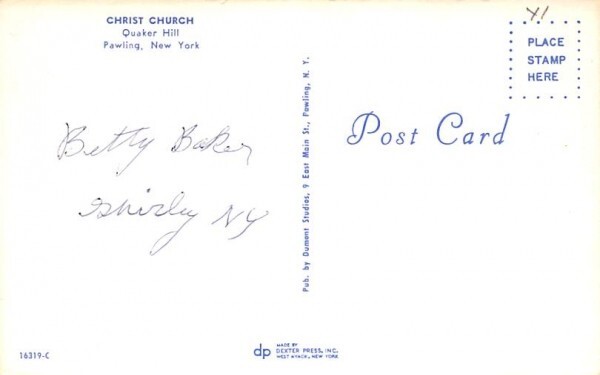 CHRIST CHURCH
Quaker Hill
Pawling, New York
Betty Baker
Shirley NY
Pub. by Dumont Studios, 9 East Main St., Pawling, N. Y.
Y1
PLACE
STAMP
HERE
Post Card
16319-C
dp
MADE BY
DEXTER PRESS, INC.
WEST NYACK, NEW YORK